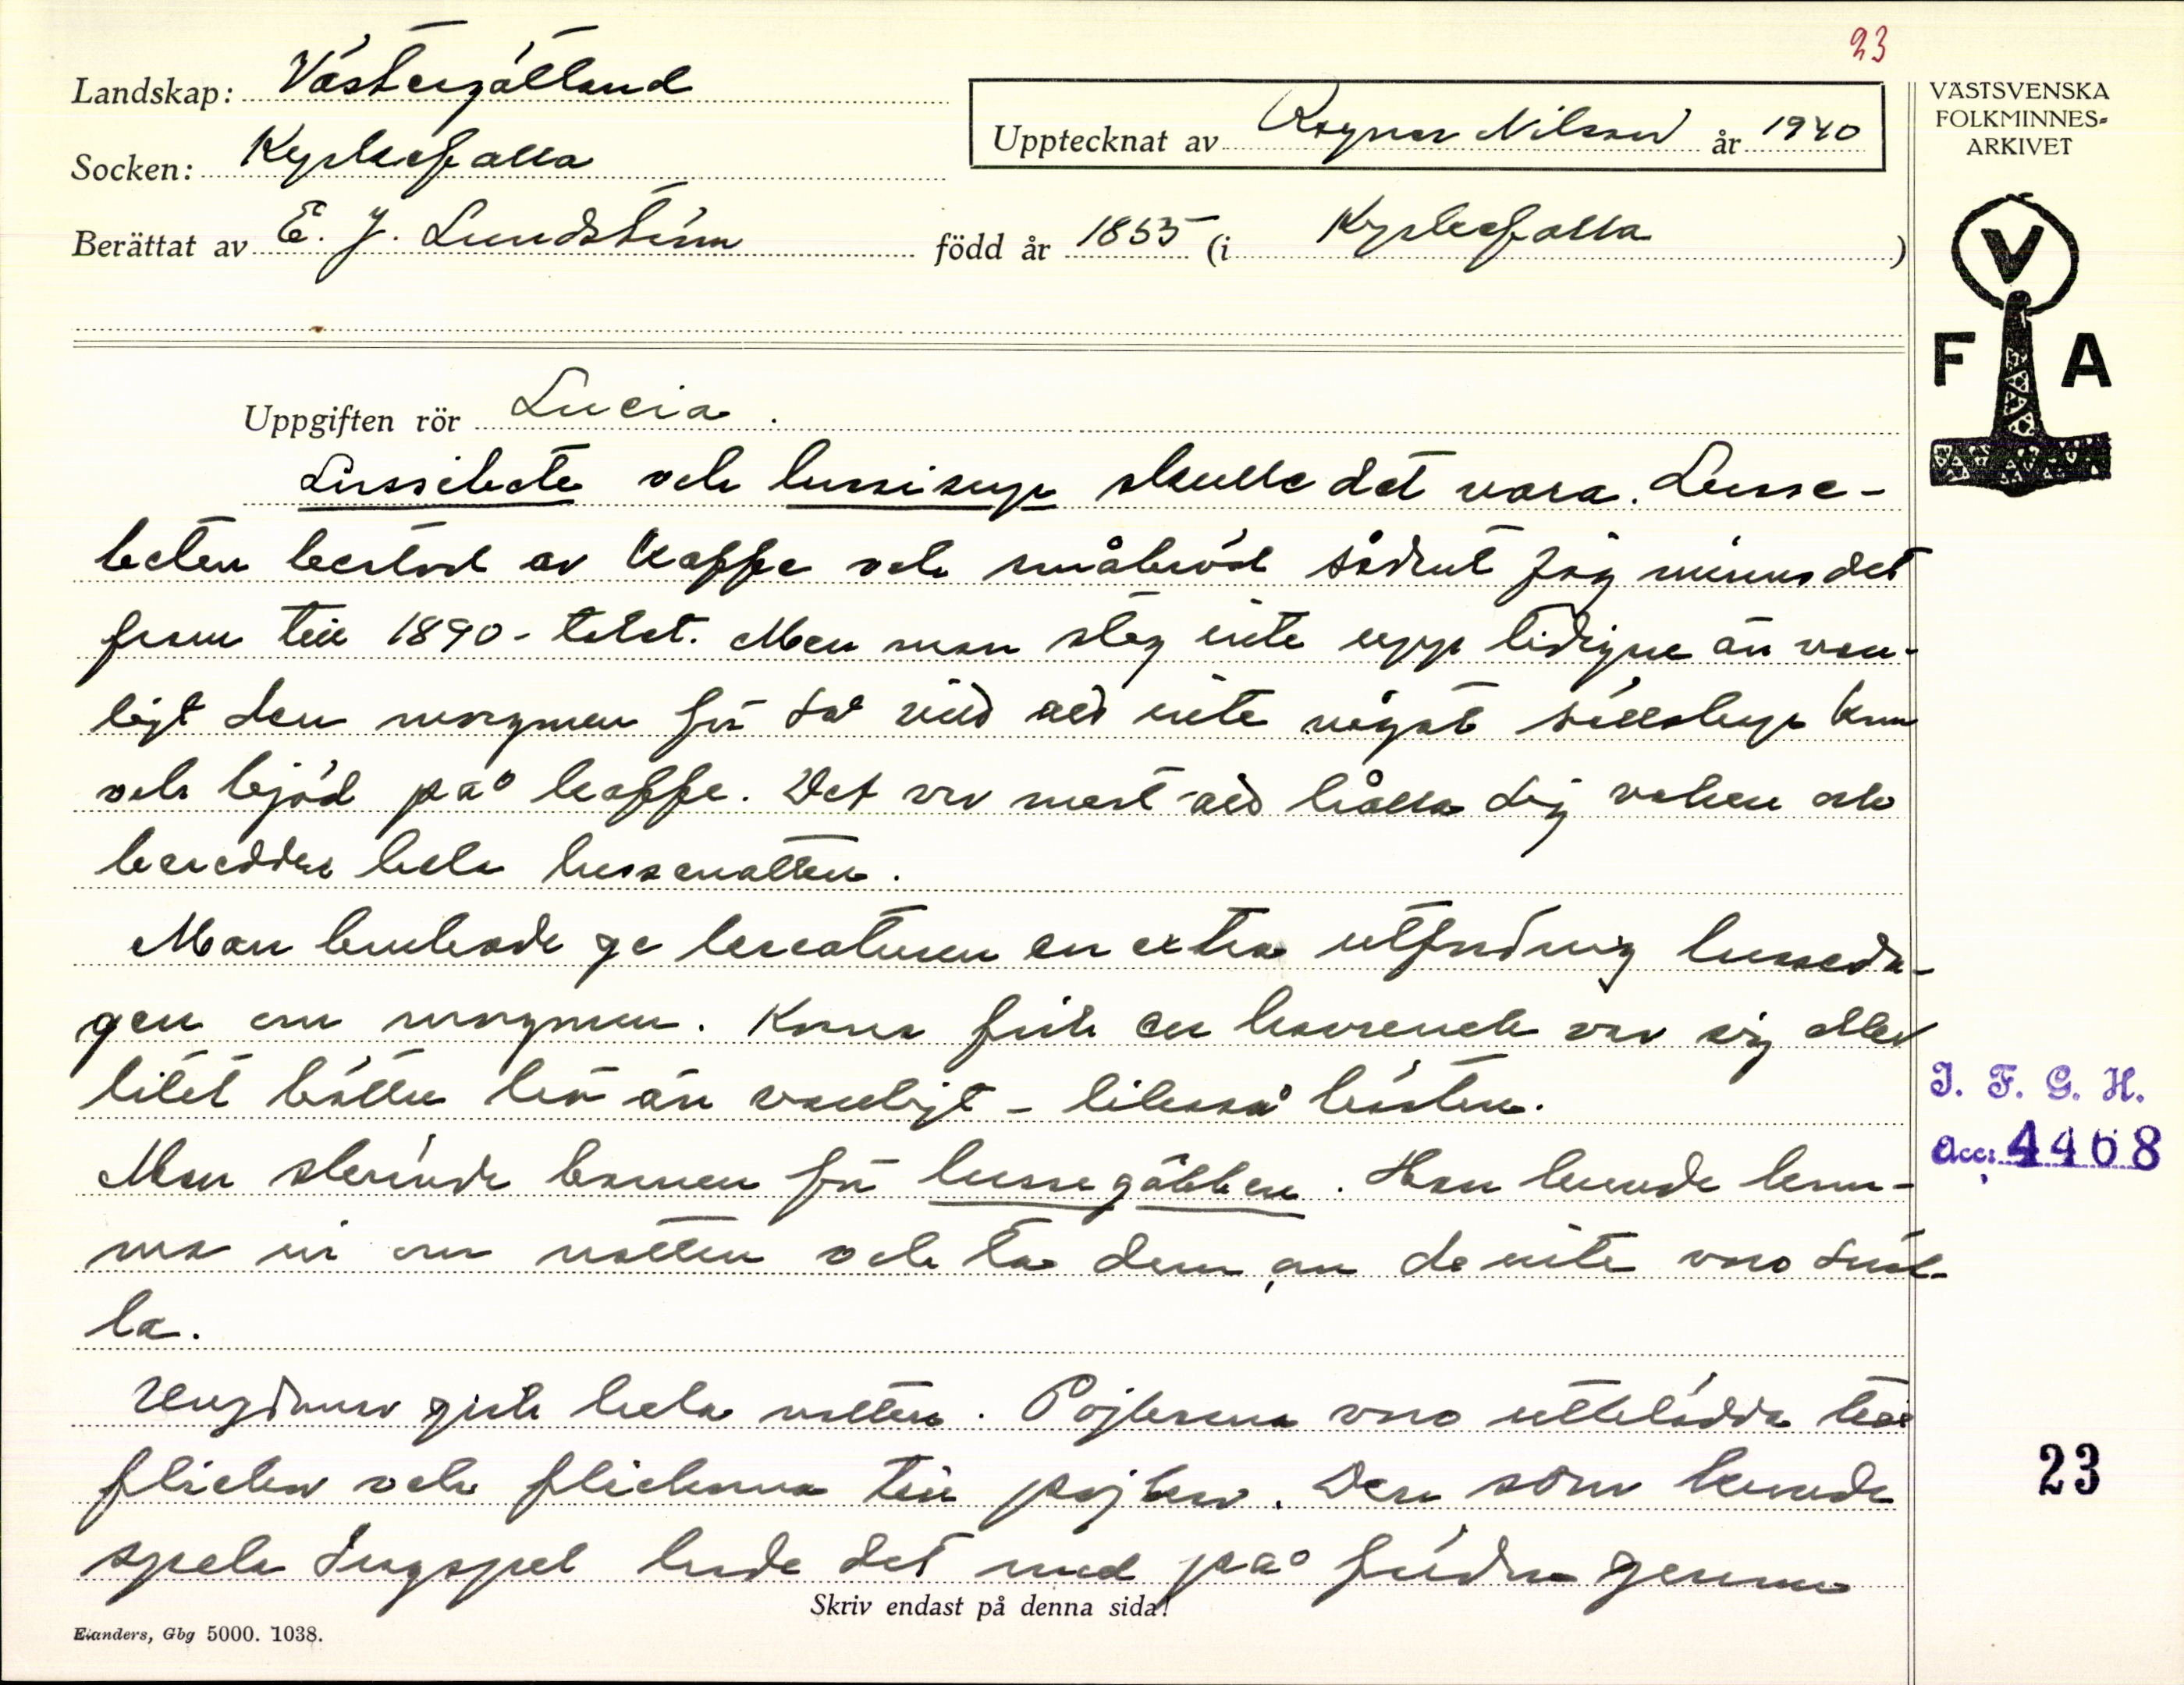 23
Landskap: Västergötland
Socken: Kyrkefalla
Upptecknat av Ragnar Nilsson år 1940
Berättat av E. J. Lundström född år 1855 (i Kyrkefalla)
VÄSTSVENSKA
FOLKMINNES-
ARKIVET
V
F A
Uppgiften rör Lucia.
Lussebete och lussesup skulle det vara. Lusse-
beten bestod av kaffe och småbröd sådant jag minns det
fram till 1890-talet. Men man steg inte upp tidigare än van-
ligt den morgonen för så vitt att inte något sällskap kom
och bjöd på kaffe. Det var mest att hålla sig vaken och
beredder hela lussenatten.
Man brukade ge kreaturen en extra utfodring lusseda-
gen om morgonen. Korna fick en havrenek var sig eller
litet bättre hö än vanligt - likaså hästen.
Man skrämde barnen för lussegubben. Han kunde kom-
ma in om natten och ta dem om de inte voro snäl-
la.
Ungdomar gick hela natten. Pojkarna voro utklädda till
flickor och flickorna till pojkar. Den som kunde
spela dragspel hade det med på färden genom
Skriv endast på denna sida!
Elanders, Gbg 5000. 1038.
I. F. G. H.
Acc: 4468
23